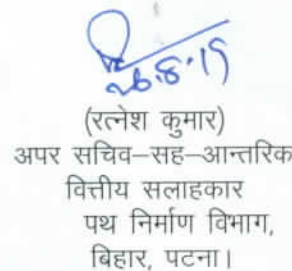 26.8.19
(रत्नेश कुमार)
अपर सचिव–सह–आन्तरिक
वित्तीय सलाहकार
पथ निर्माण विभाग,
बिहार, पटना।